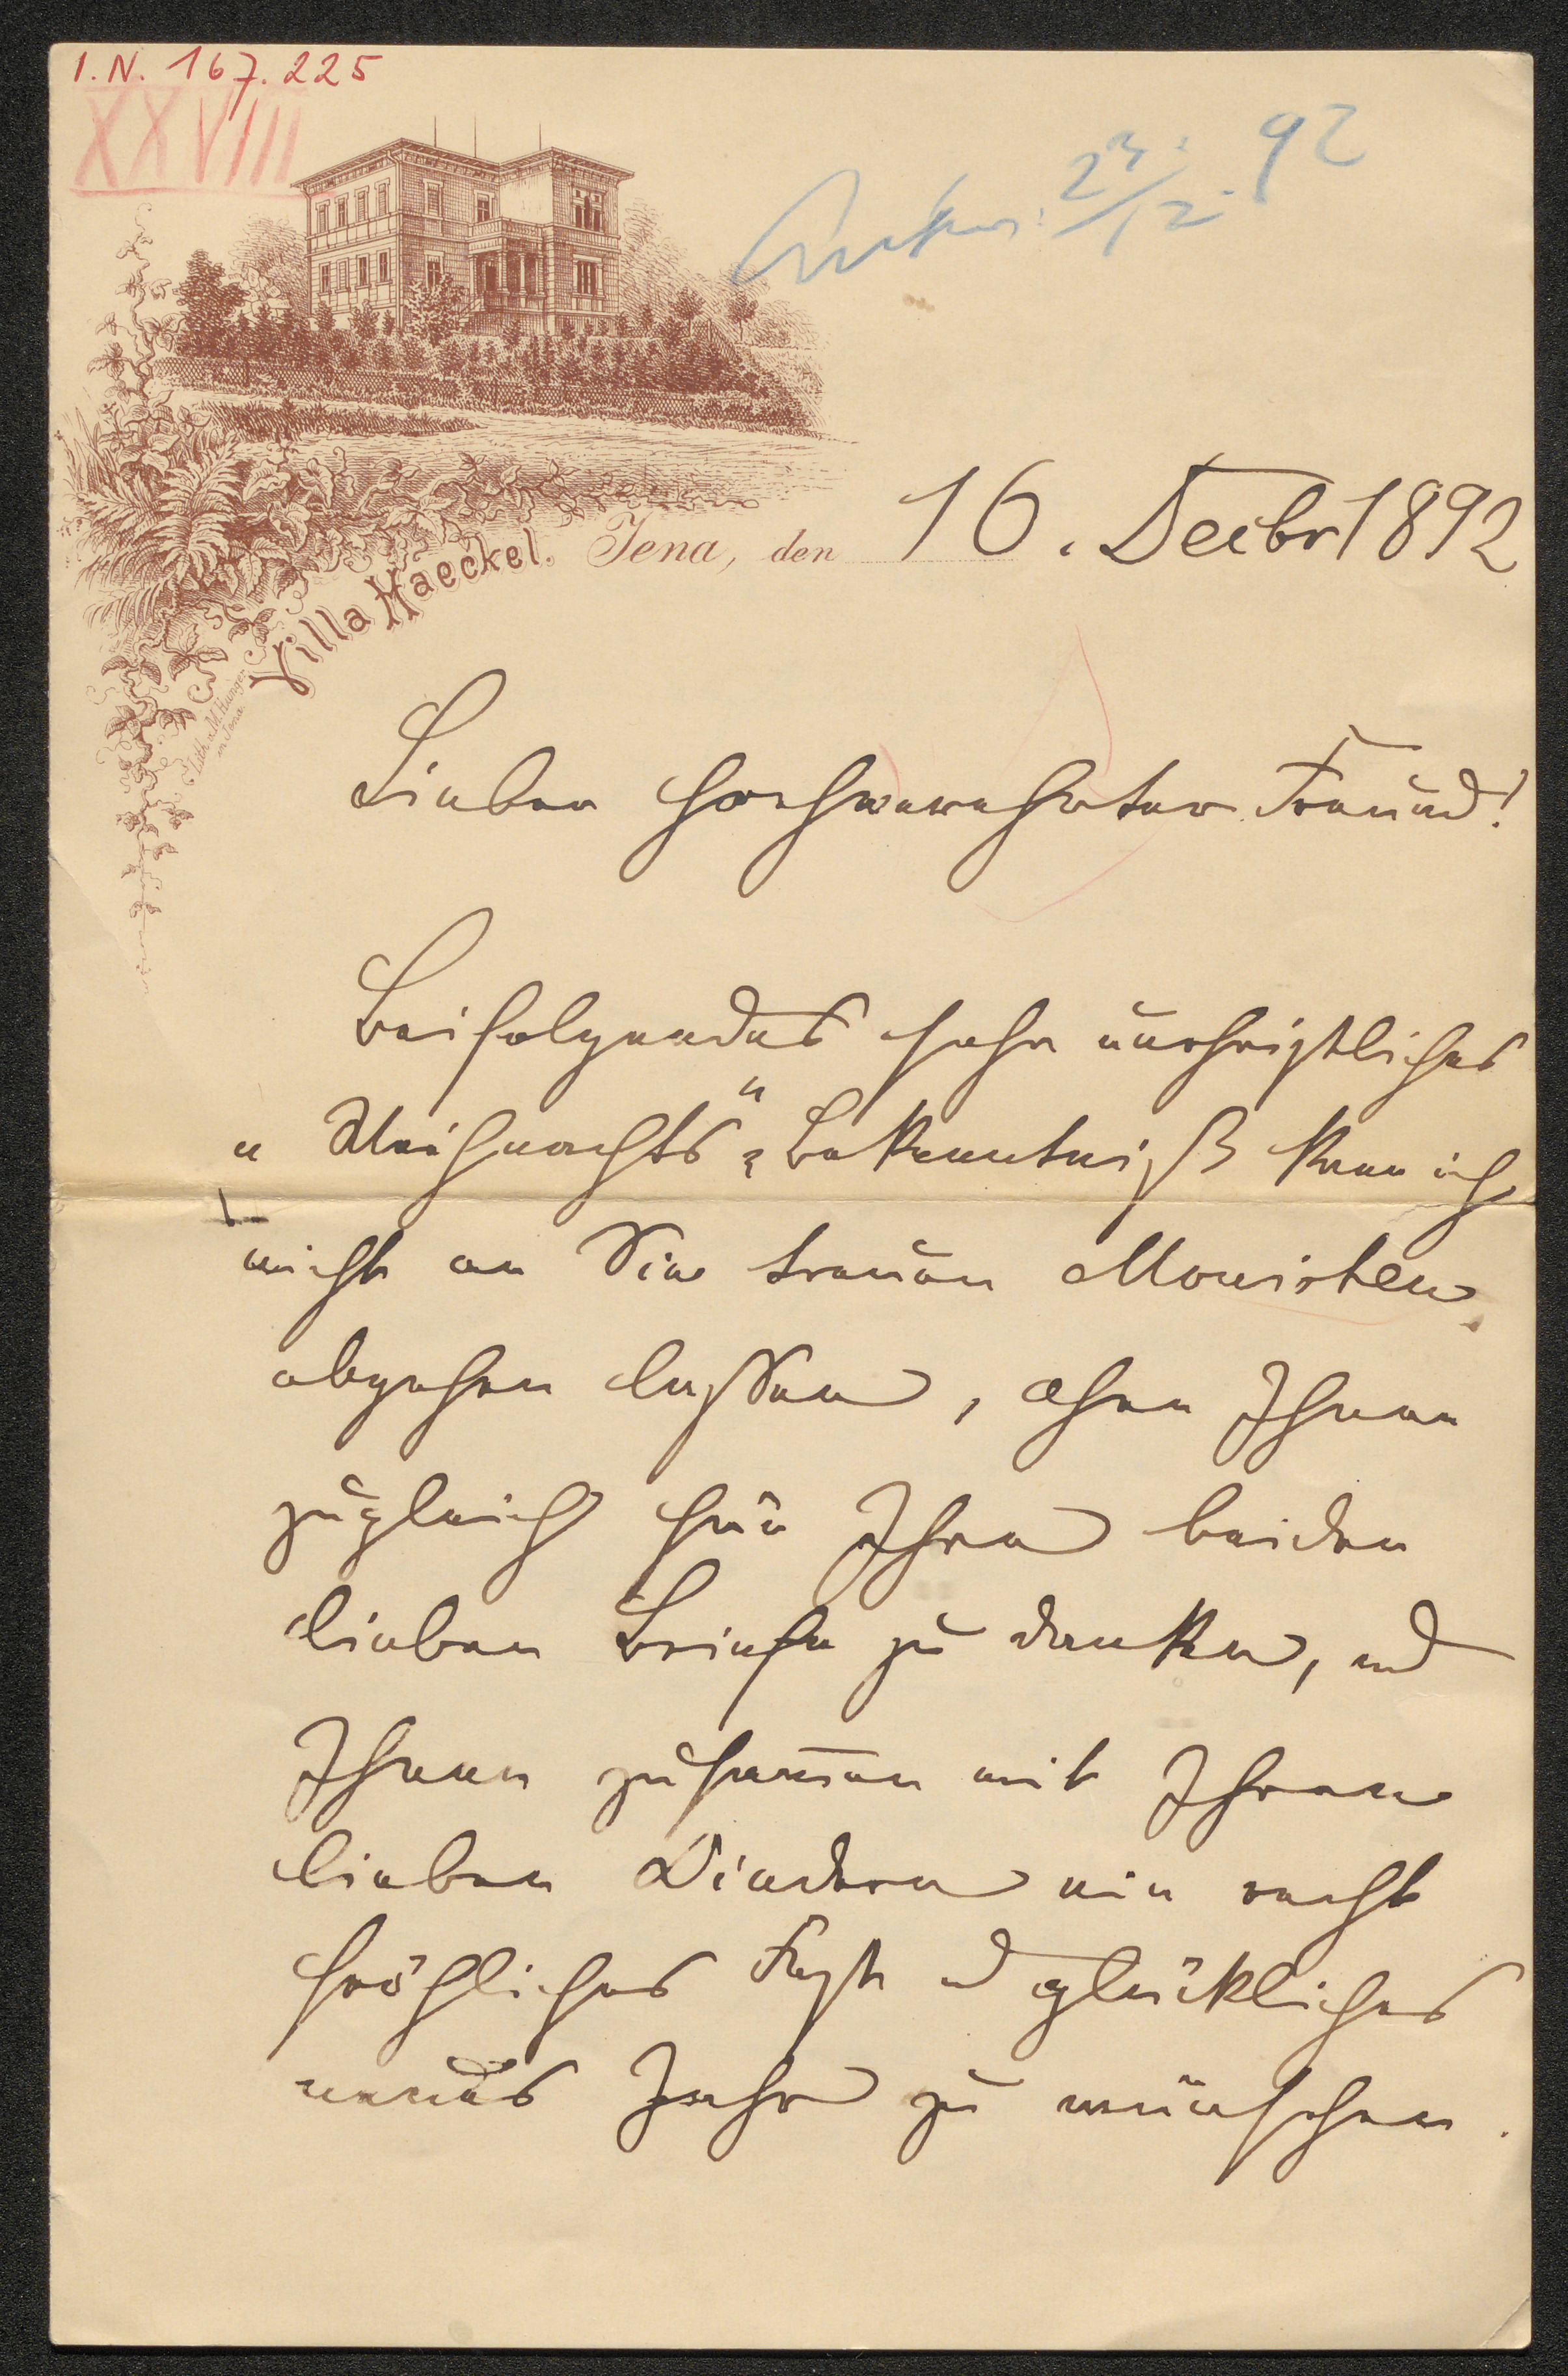 I. N. 167.225
XXVIII
Antw: 23/12. 92
Villa Haeckel.
Lith. v. M. Hunger
in Jena
Jena, den 16. Decbr 1892
Lieber hochverehrter Freund!
Beifolgendes sehr unchristliches
"Weihnachts"-Bekenntniß kann ich
nicht an die treuen Monisten
abgehen lassen, ohne Ihnen
zugleich für Ihre beiden
lieben Briefe zu danken, und
Ihnen zusam̅en mit Ihren
lieben Kindern ein recht
fröhliches Fest u glückliches
neues Jahr zu wünschen.